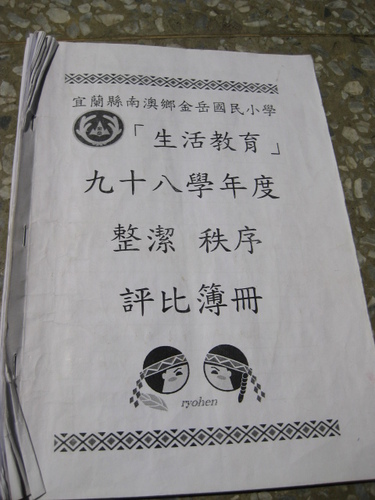 宜蘭縣南澳鄉金岳國民小學
「生活教育」
九十八學年度
整潔 秩序
評比簿冊
ryohen